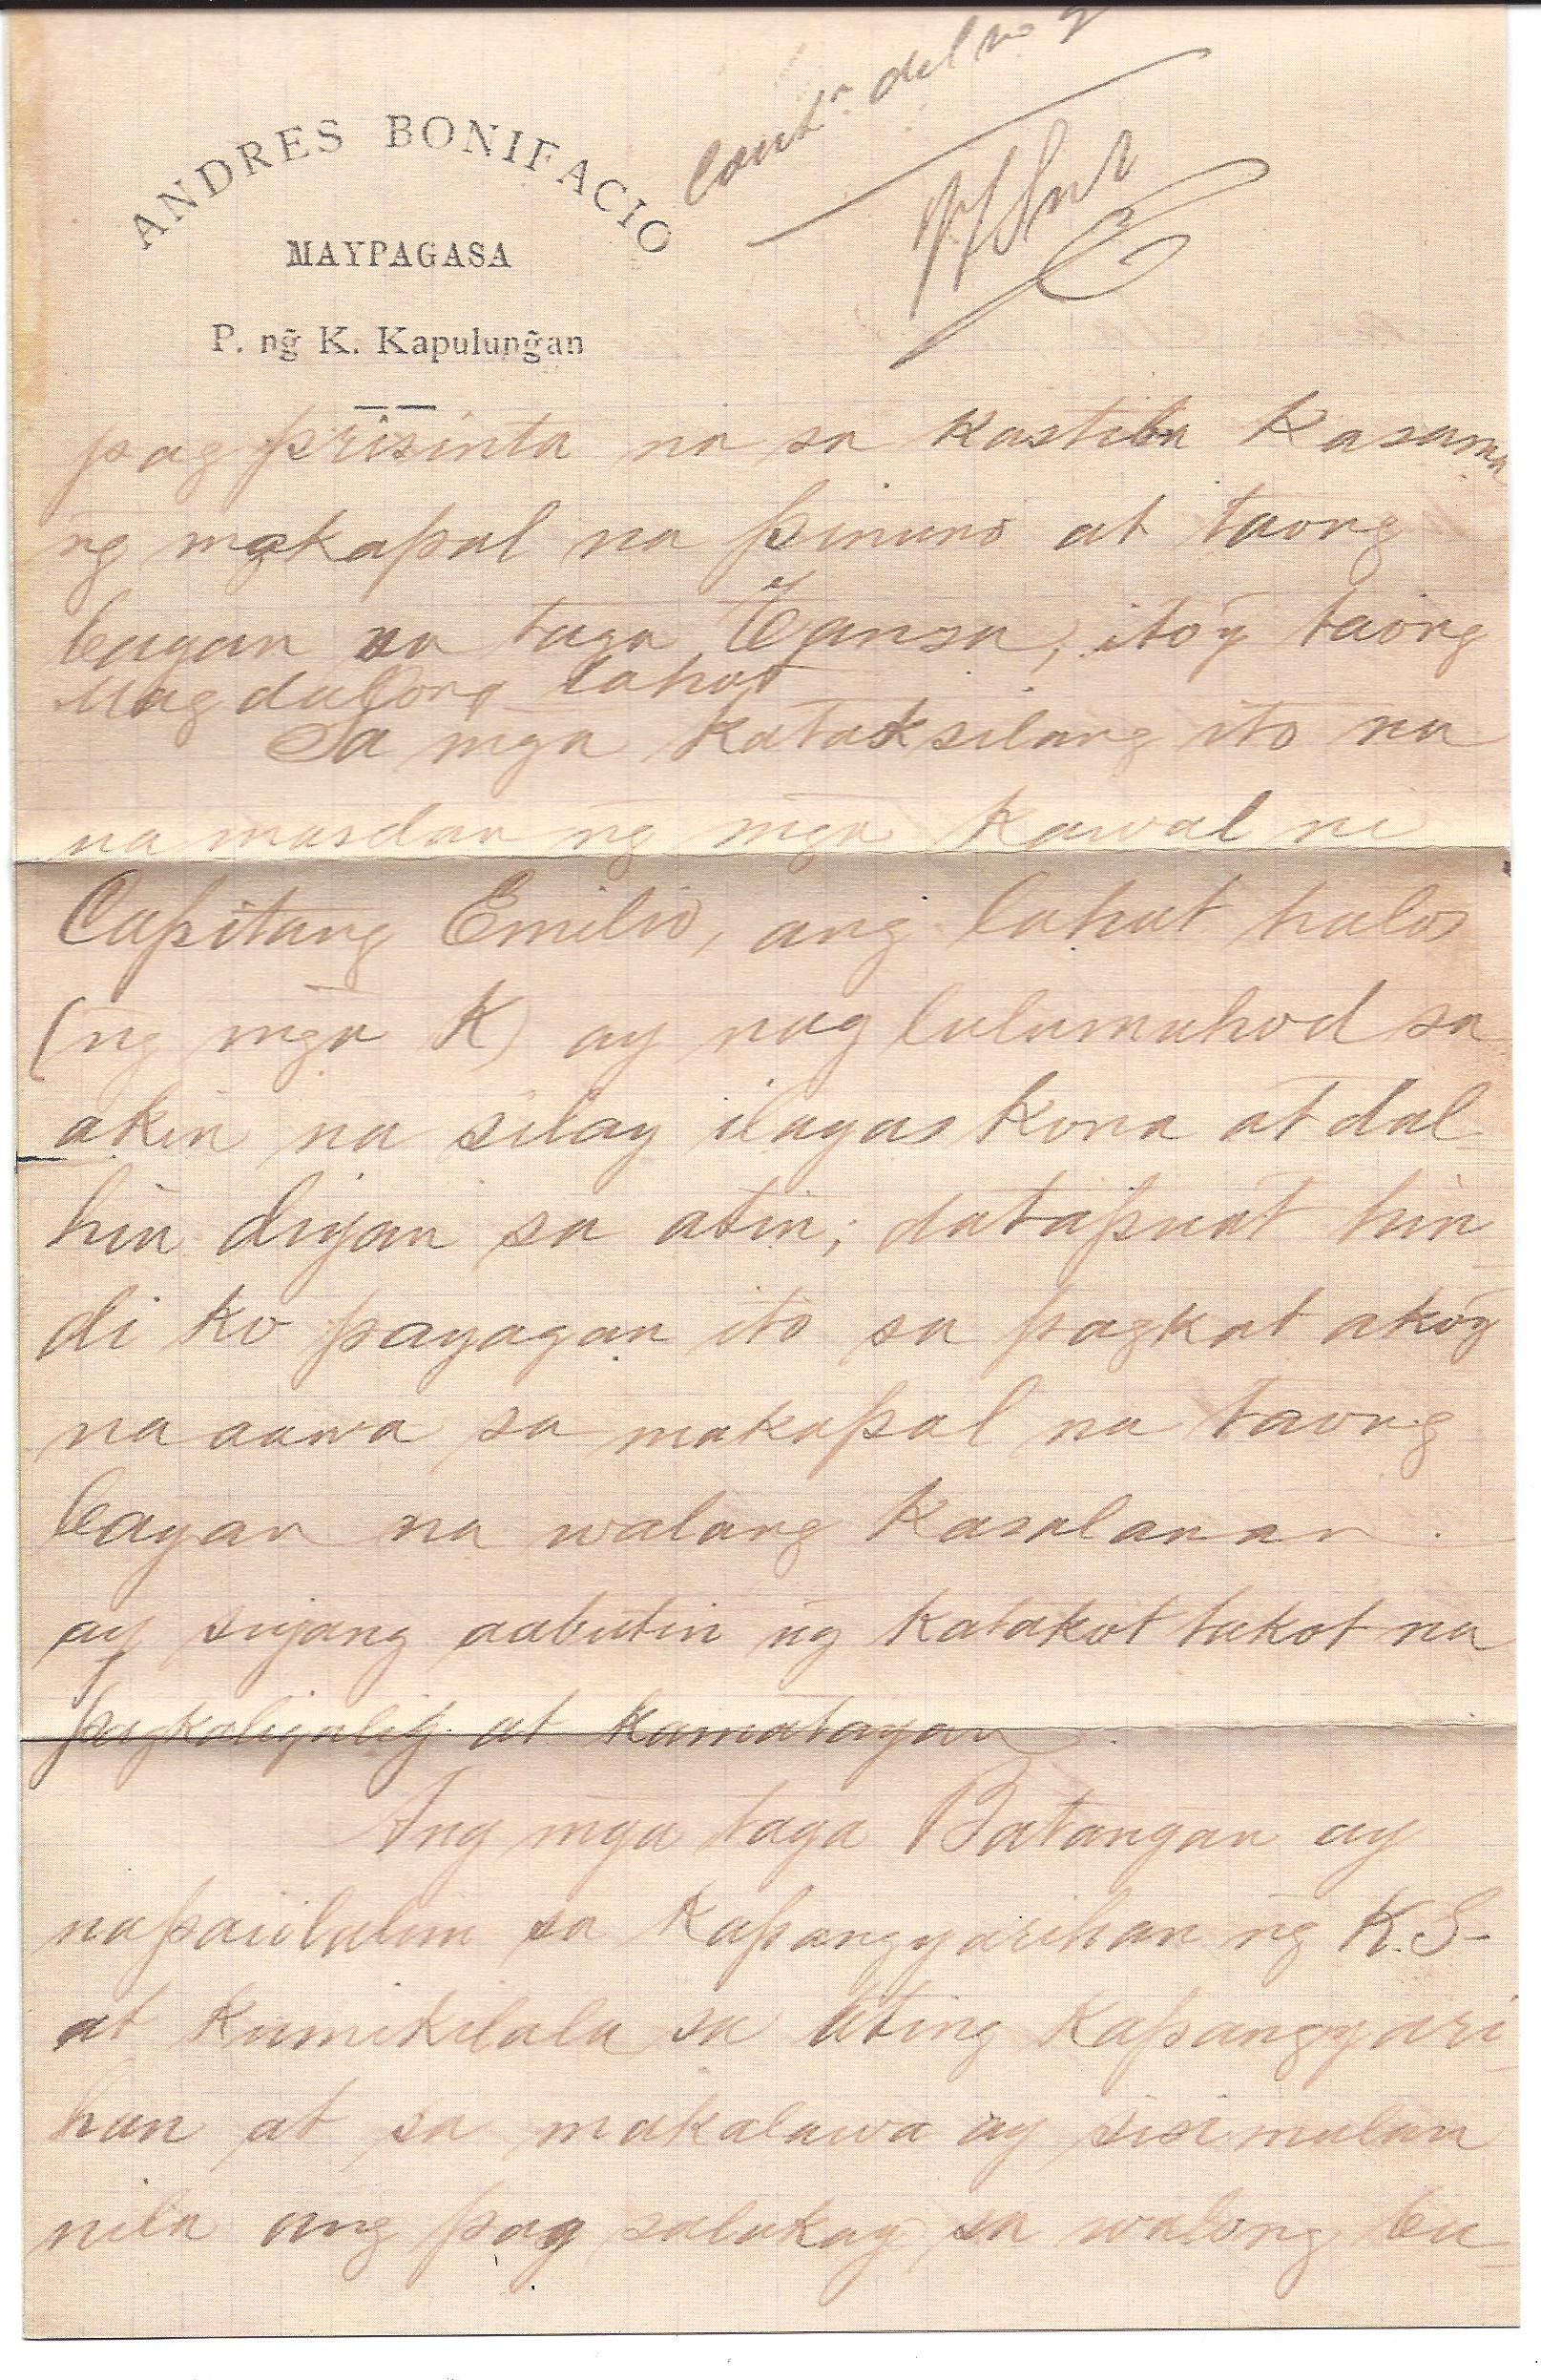 Contn del no 9
ANDRES BONIFACIO
MAYPAGASA
P. ng̃ K. Kapulung̃an
pag prisinta na sa kastila kasama
ng makapal na pinuno at taong
bayan na taga Tansa, ito'y taong
Magdalong lahat
Sa mga kataksilang ito na
na masdan ng mga kawal ni
Capitang Emilio, ang lahat halos
(ng mga K) ay nag lulumuhod sa
akin na silay ilagas kona at dal
hin diyan sa atin; datapuat hin
di ko payagan ito sa pagkat akoy
na aawa sa makapal na taong
bayan na walang kasalanan
ay siyang aabutin ng katakot takot na
pagkaligalig at kamatayan.
Ang mga taga Batangan ay
napaiilalim sa kapangyarihan ng K. S-
at kumikilala sa ating kapangyari
han at sa makalawa ay sisimulan
nila ang pag salakay sa walong ba-